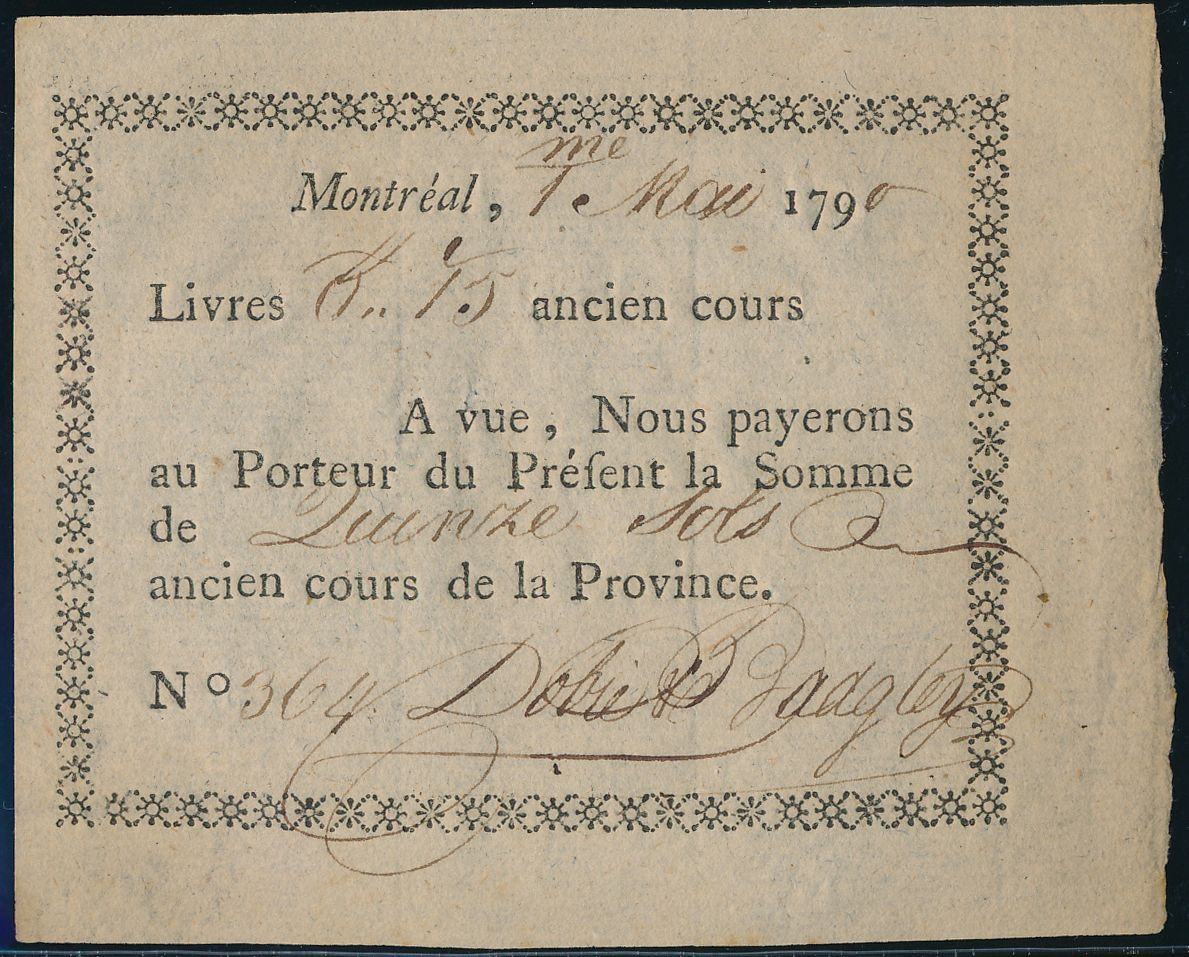 Montréal, 1.me Mai 1790
Livres 15 ancien cours
A vue, Nous payerons
au Porteur du Préſent la Somme
de Quinze Sols
ancien cours de la Province.
No 364. Dobie & Badgley